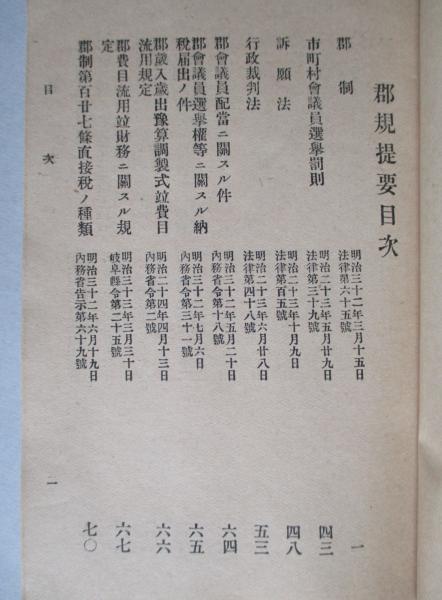 郡規提要目次
郡制
明治三十二年三月十五日
法律第六十五號
一
市町村會議員選擧罰則
明治二十三年五月廿九日
法律第三十九號
四三
訴願法
明治二十三年十月九日
法律第百五號
四八
行政裁判法
明治二十三年六月廿八日
法律第四十八號
五三
郡會議員配當ニ關スル件
明治三十二年五月二十日
內務省令第十八號
六四
郡會議員選擧權等ニ關スル納
稅屆出ノ件
明治三十二年七月六日
內務省令第三十一號
六五
郡歲入歲出豫算調製式竝費目
流用規定
明治二十四年四月十三日
內務省令第二號
六六
郡費目流用竝財務ニ關スル規
定
明治三十二年三月三十日
岐阜縣令第二十五號
六七
郡制第百廿七條直接稅ノ種類
明治三十二年六月十九日
內務省吿示第六十九號
七〇
目次
一